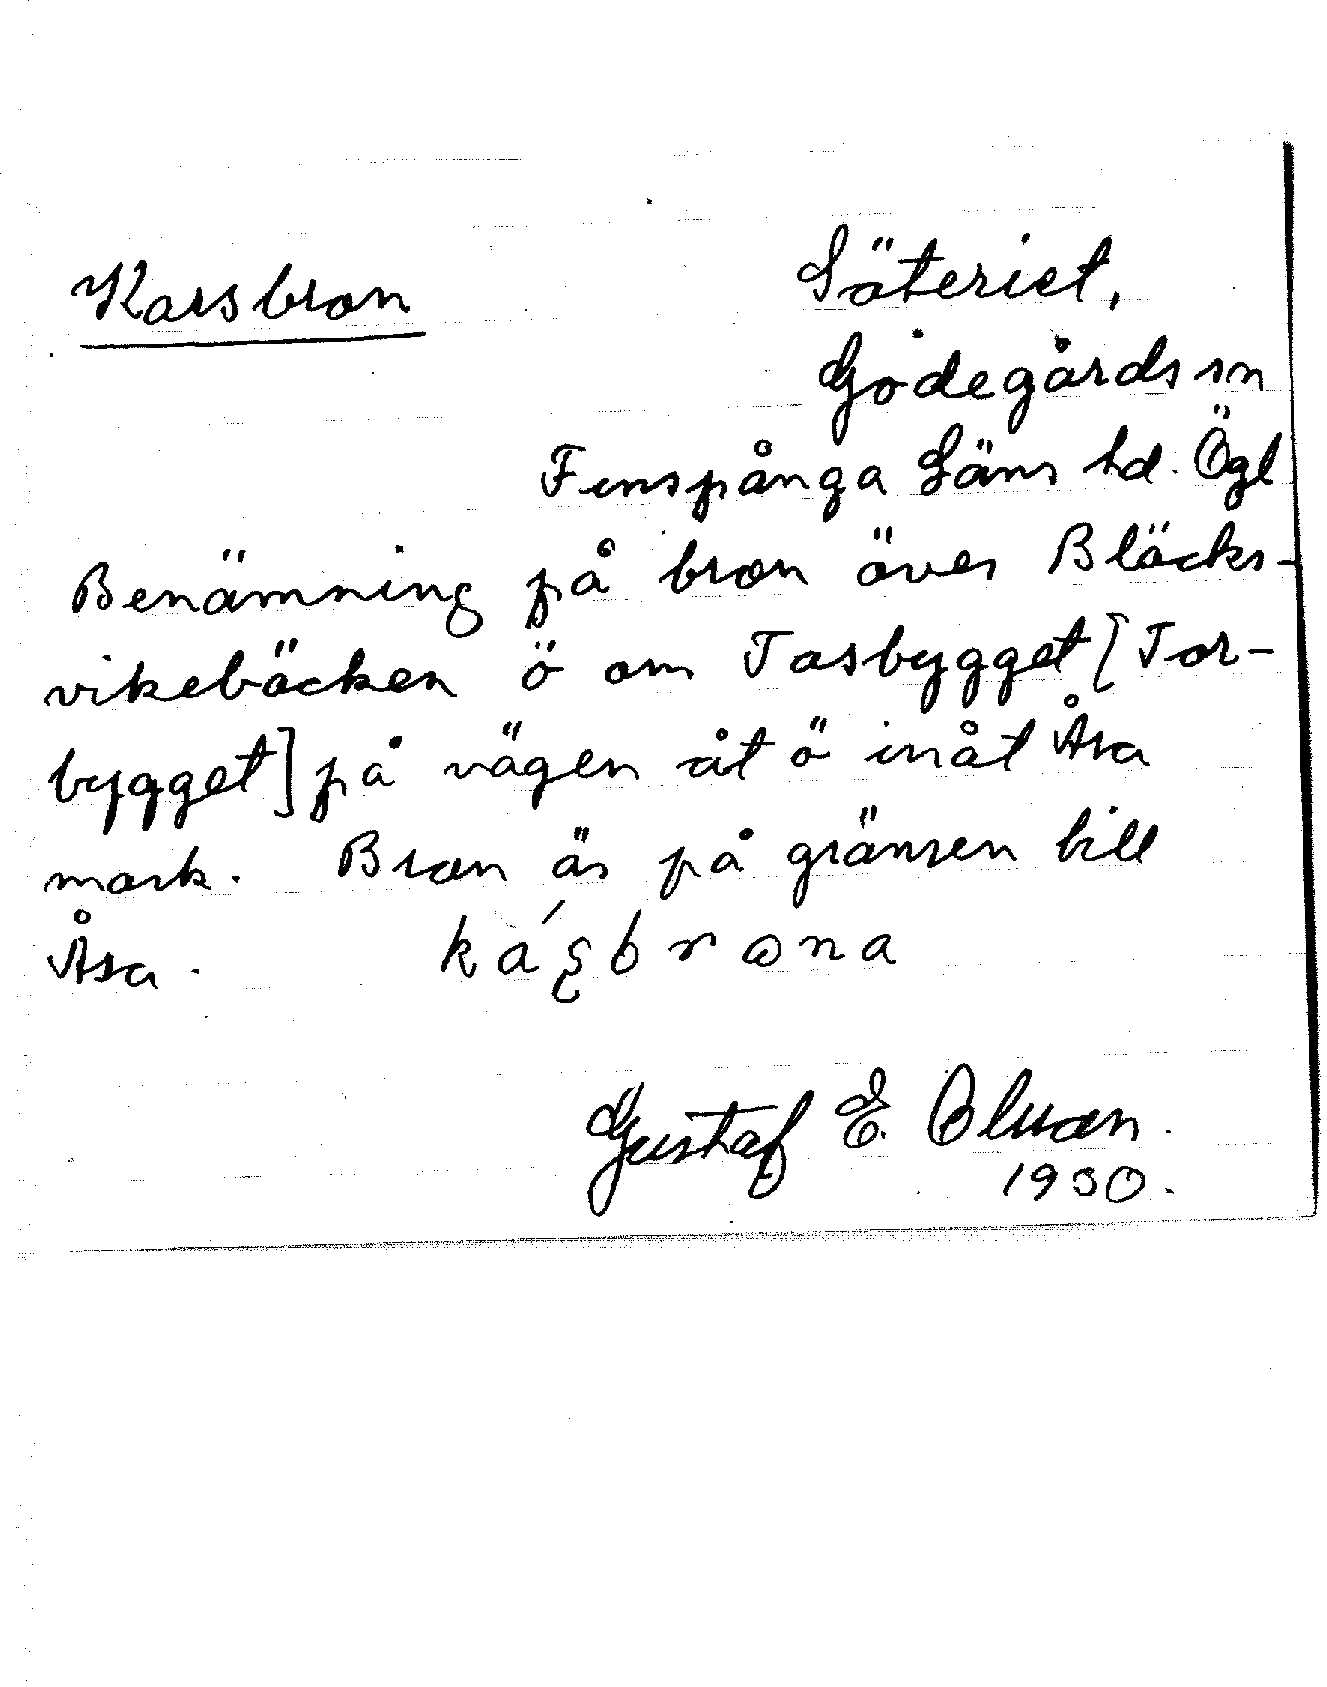 Karsbron
Säteriet,
Godegårds sn
Finspånga Läns hd. Ögl
Benämning på bron över Bläcks-
vikebäcken ö om Tosbygget [Tor-
bygget] på vägen åt ö inåt Åsa
mark. Bron är på gränsen till
Åsa. kásbrona
Gustaf E. Olsson.
1930.